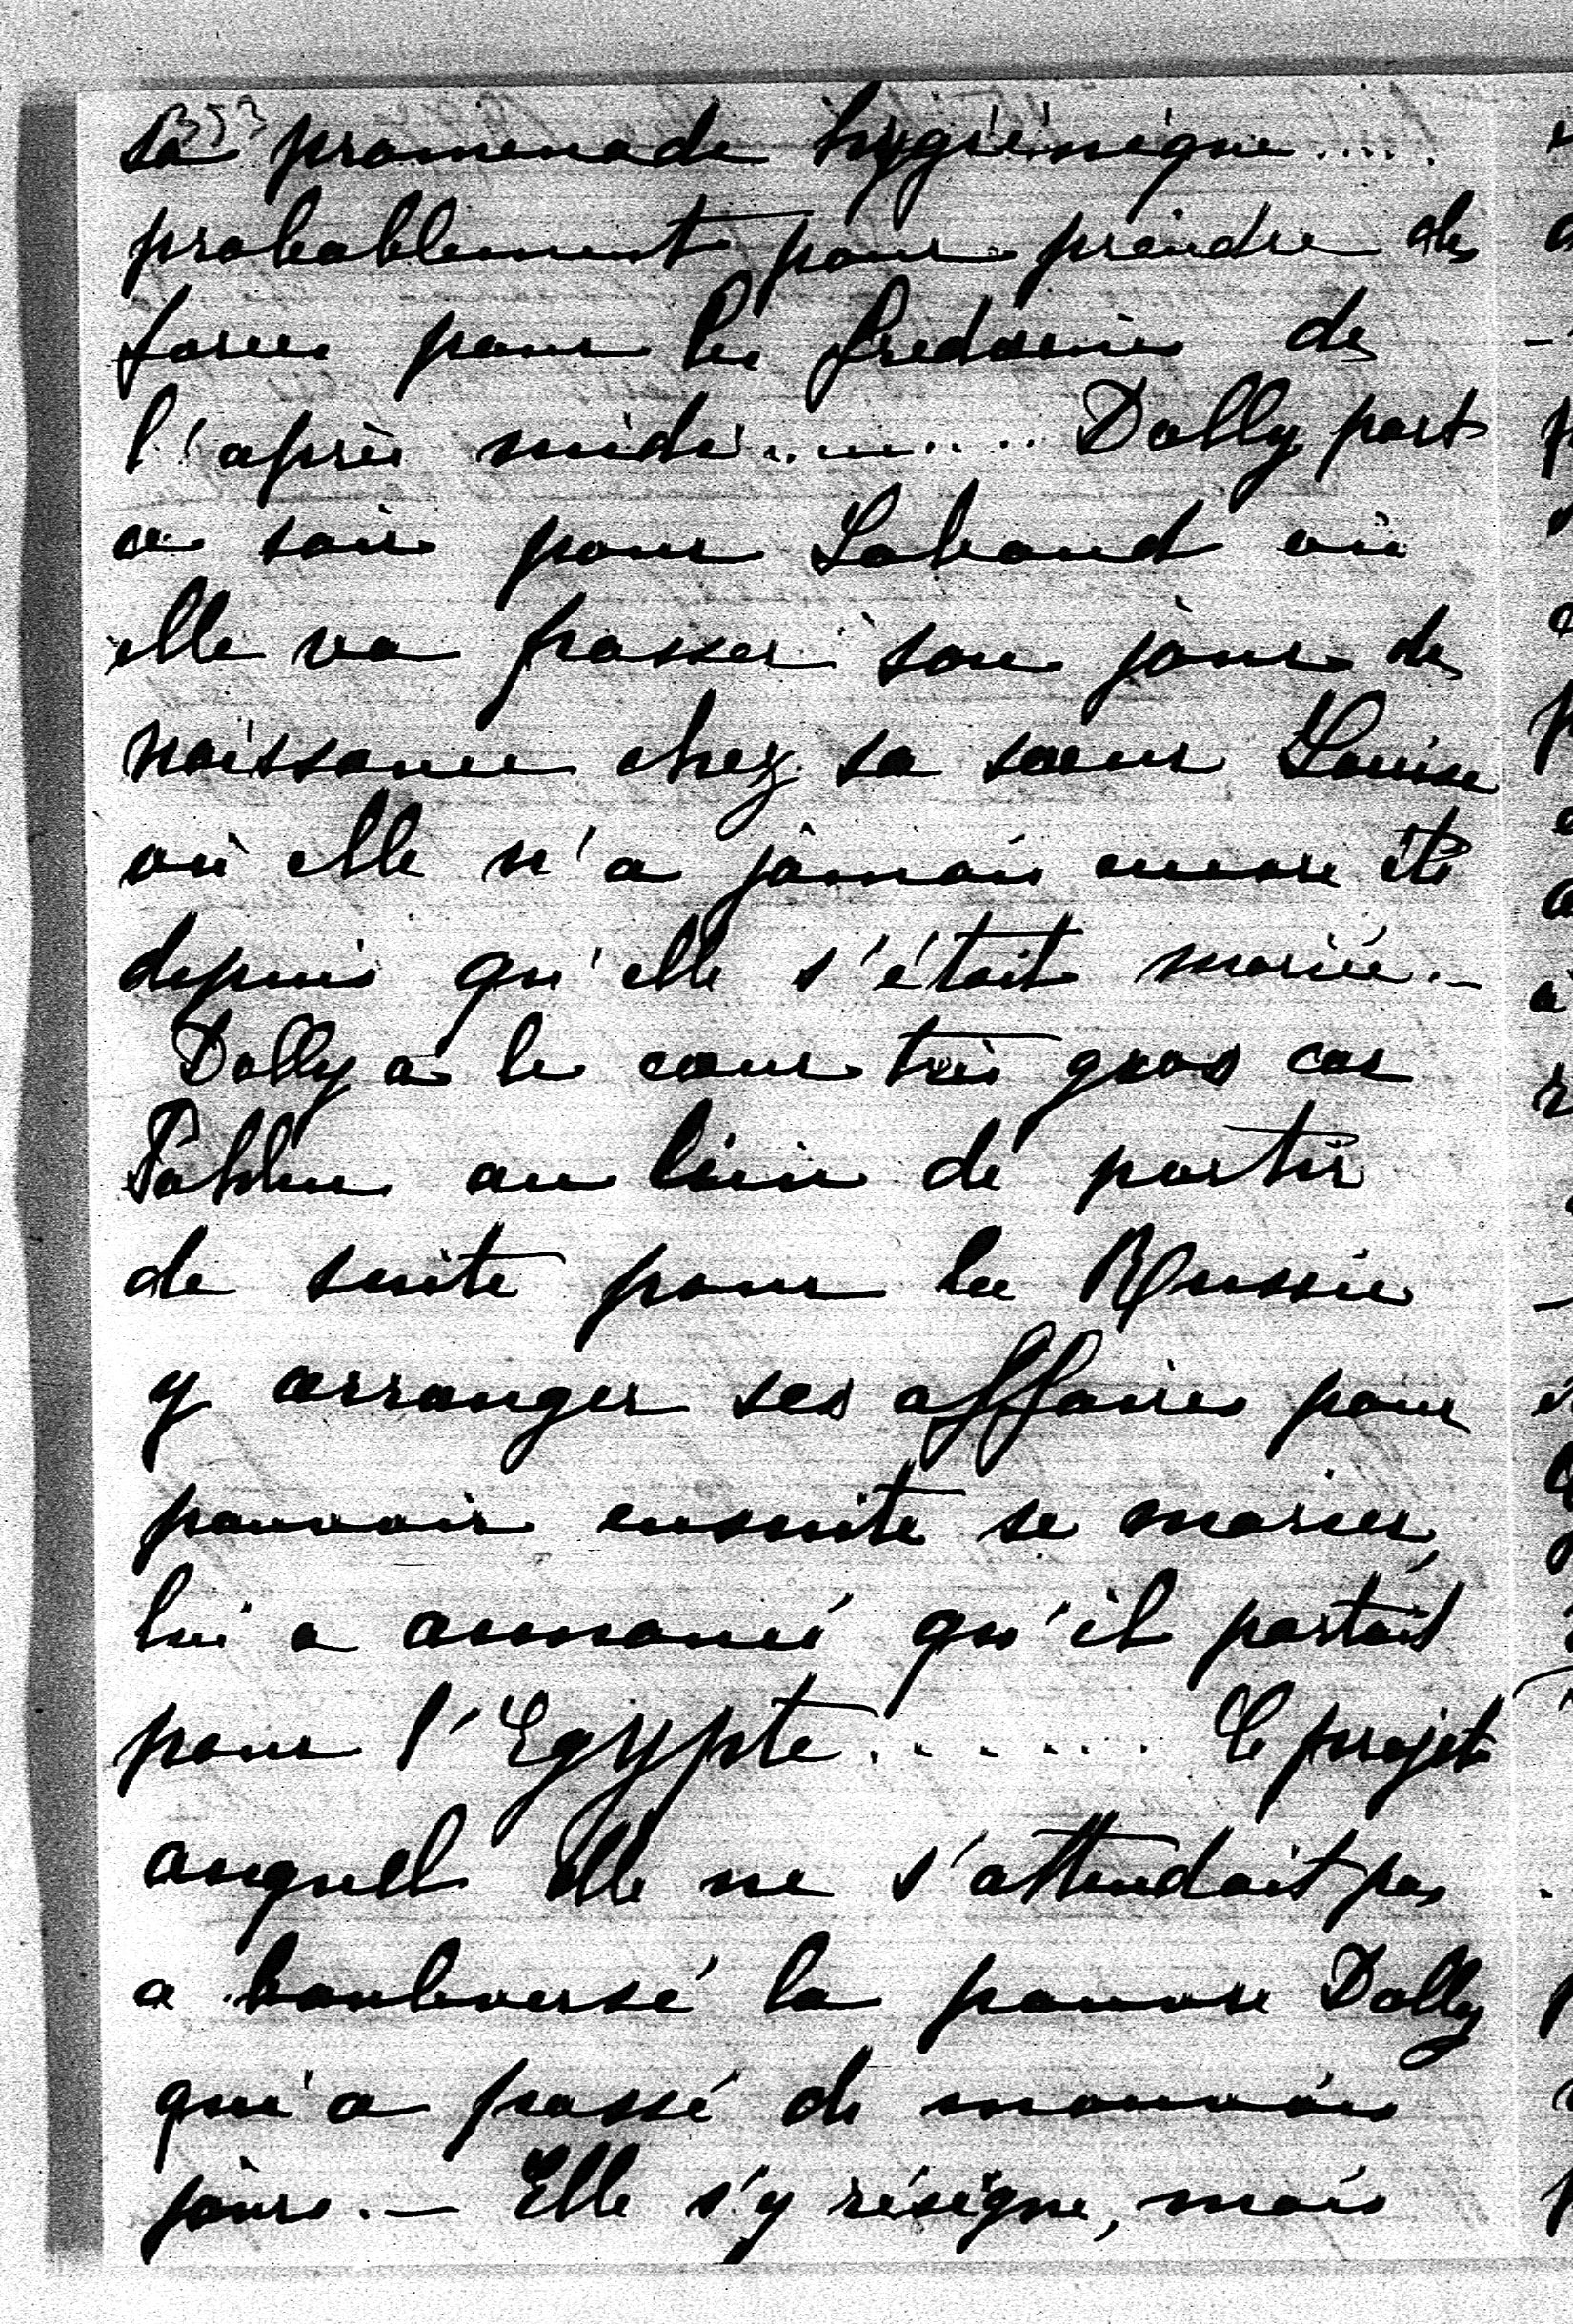 sa promenade hygiénique.....
probablement pour prendre des
forces pour les fredaines de
l'après midi.......... Dolly part
ce soir pour où
elle va passer son jour de
naissance chez sa soeur Louise
où elle n'a jamais encore été
depuis qu'elle s'était mariée.—
Dolly a le coeur très gros car
Pahlen au lieu de partir
de suite pour la Russie
y arranger ses affaires pour
pouvoir ensuite se marier,
lui a annoncé qu'il partait
pour l'Egypte....... Ce projet
auquel elle ne s'attendait pas
a bouleversé la pauvre Dolly
qui a passé de mauvais
jours.— Elle s'y résigne, mais